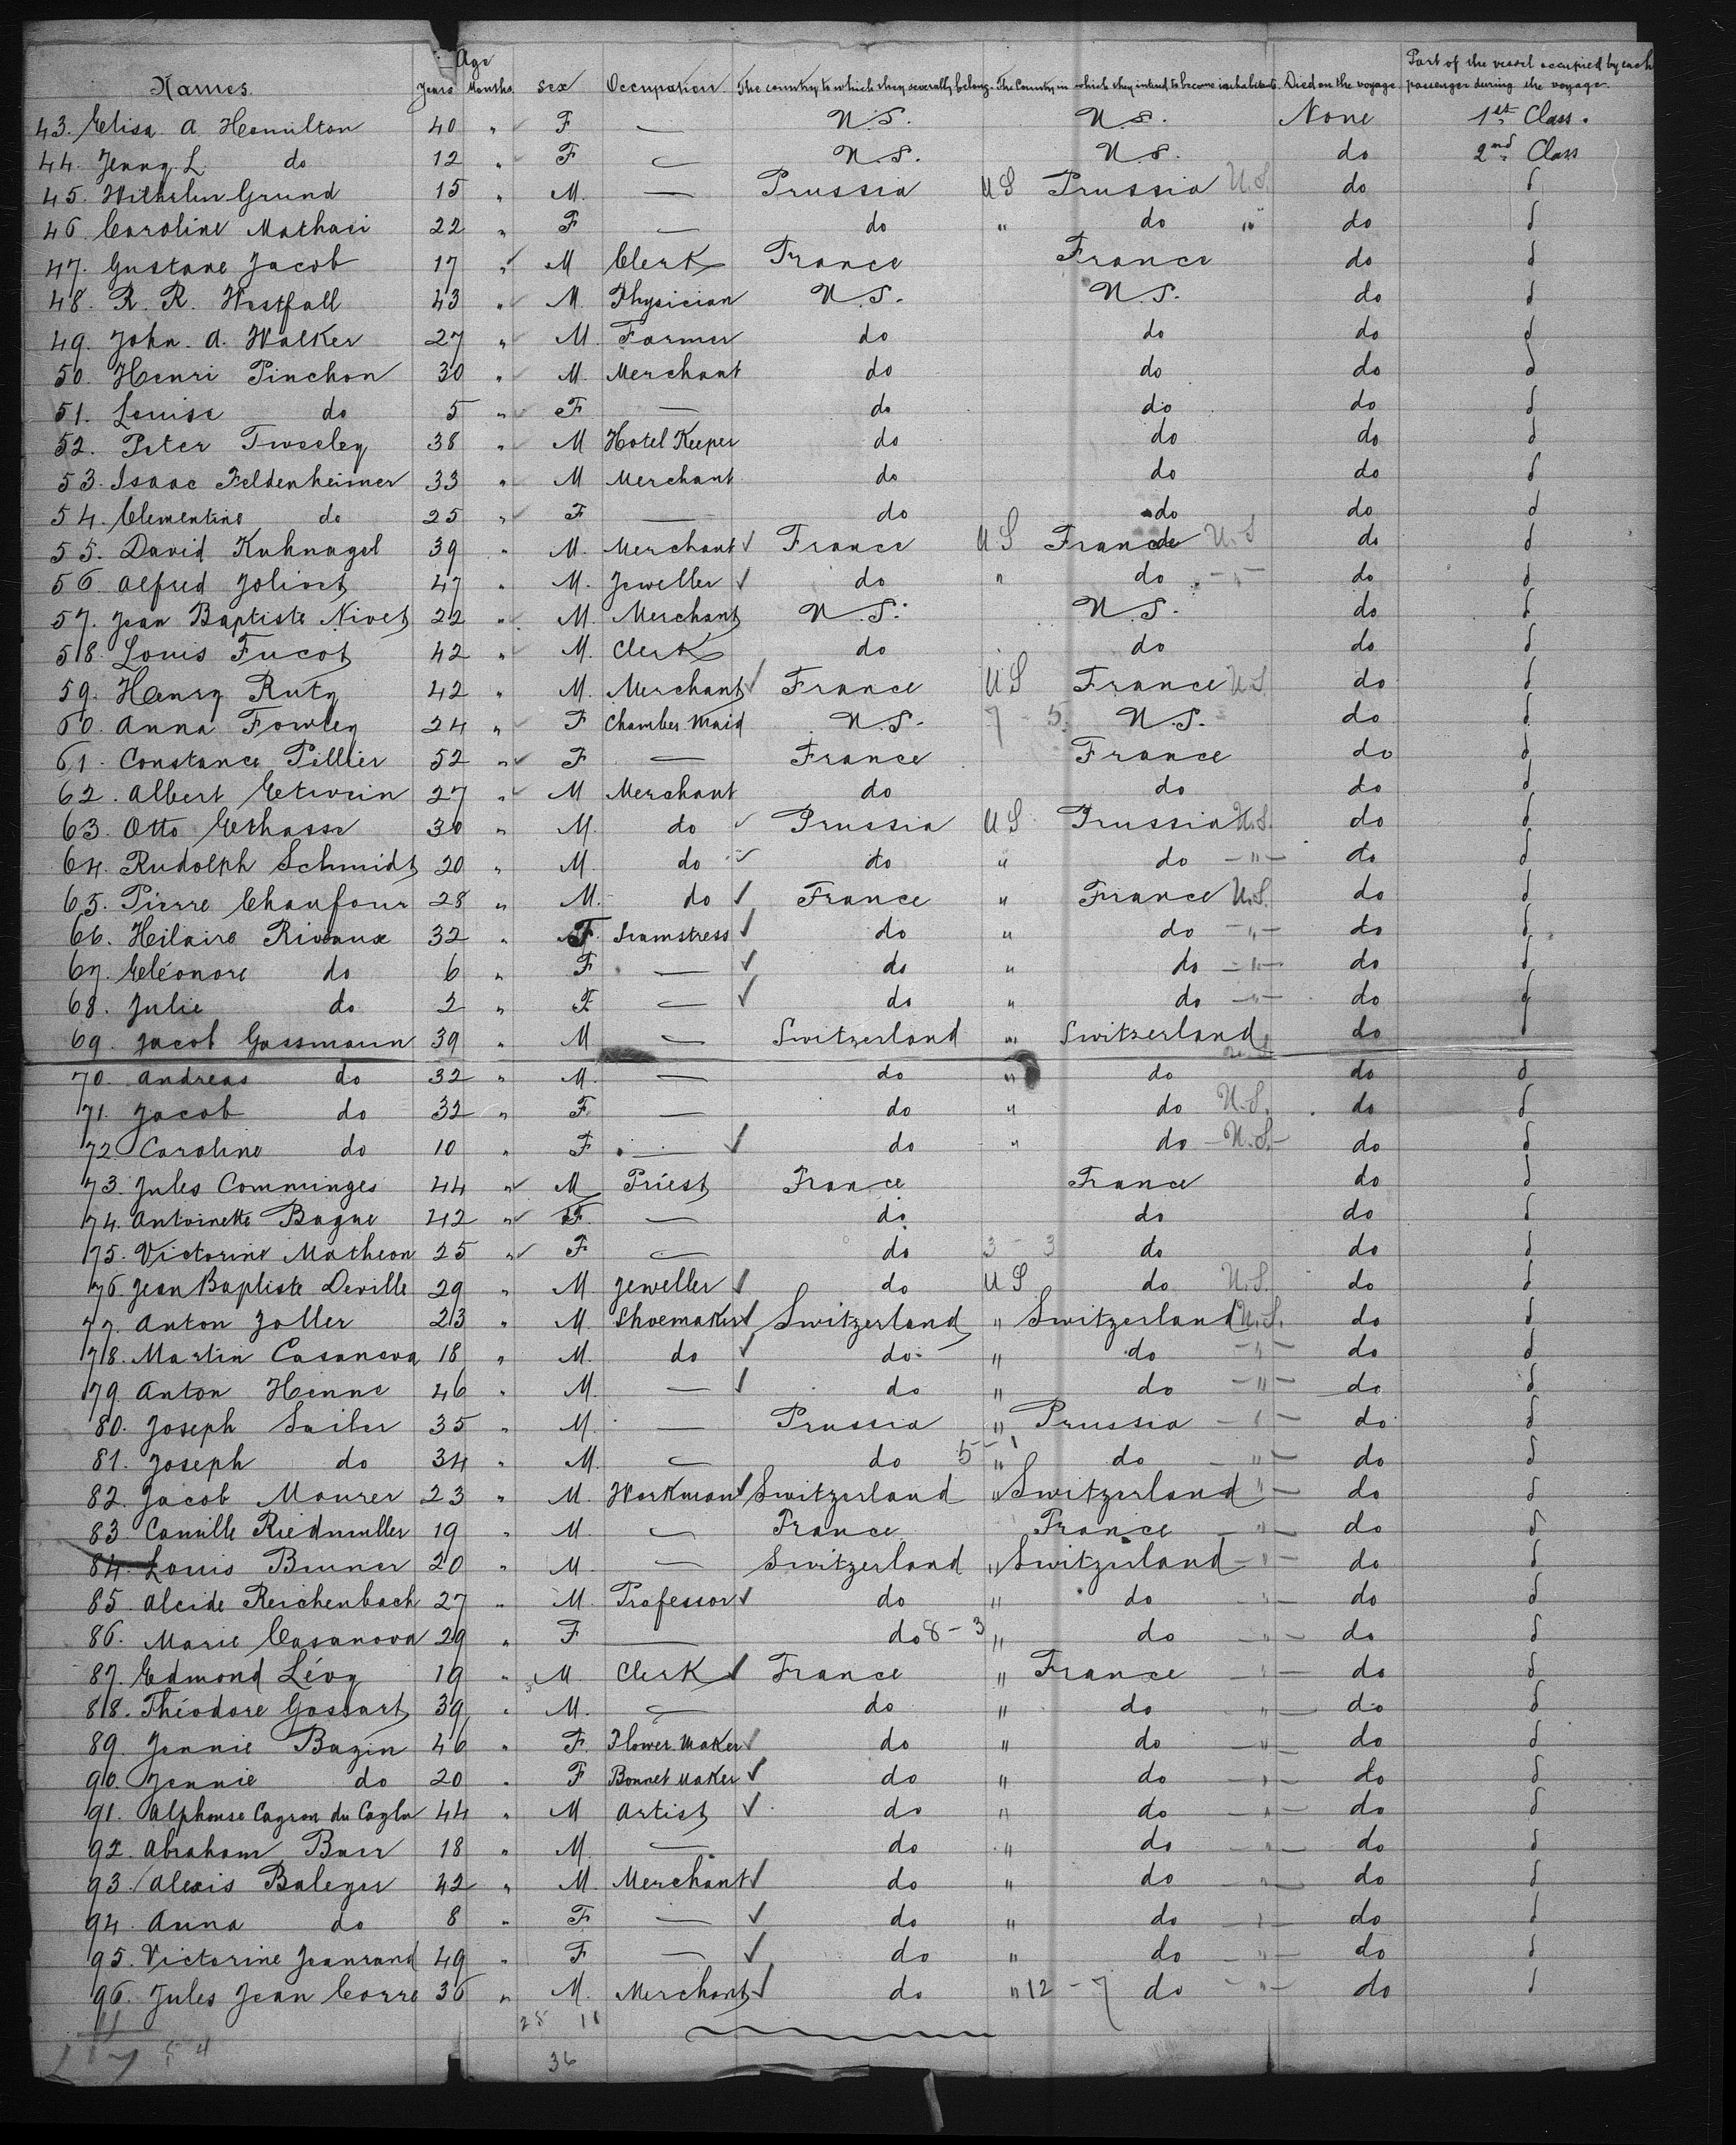 Names. Age Years Months Sex Occupation The country to which they severally belong. The Country in which they intend to become inhabitants. Died on the voyage Part of the vessel occupied by each passenger during the voyage.
43. Elisa A Hamilton 40 " F — U.S. U.S. None 1st Class.
44. Jenny L do 12 " F — U.S. U.S. do 2nd Class
45. Wilhelm Grund 15 " M. — Prussia US Prussia U.S. do d
46 Caroline Mathaei 22 " F — do " do " do d
47. Gustave Jacob 17 " M Clerk France France do d
48. R. R. Westfall 43 " M. Physician U.S. U.S. do d
49. John. A. Walker 27 " M. Farmer do do do d
50. Henri Pinchon 30 " M. Merchant do do do d
51. Louise do 5 " F — do do do d
52. Peter Tweeley 38 " M Hotel Keeper do do do d
53. Isaac Feldenheimer 33 " M Merchant do do do d
54. Clementine do 25 " F — do do do d
55. David Kuhnagel 39 " M. Merchant France US France U.S do d
56 Alfred Joliot 47 " M. Jeweller do " do - " - do d
57. Jean Baptiste Nivet 22 " M. Merchant U.S. U.S. do d
58 Louis Fucot 42 " M. Clerk do do do d
59. Henry Ruty 42 " M. Merchant France US France U.S do d
60. Anna Fowley 24 " F Chamber Maid U.S. 7 - 5 U.S. do d
61. Constance Pillier 52 " F — France France do d
62. Albert Etwein 27 " M Merchant do do do d
63. Otto Ethasse 30 " M. do Prussia US Prussia U.S. do d
64. Rudolph Schmidt 20 " M. do do " do - " - do d
65. Pierre Chaufour 28 " M. do France " France U.S. do d
66. Hilaire Riveaux 32 " F Seamstress do " do - " - do d
67. Eléonore do 6 " F — do " do - " - do d
68. Julie do 2 " F — do " do - " - do d
69. Jacob Gassmann 39 " M — Switzerland " Switzerland do d
70. Andreas do 32 " M. — do " do do d
71. Jacob do 32 " F. — do " do U.S. do d
72. Caroline do 10 " F — do " do - U.S. - do d
73. Jules Comminges 44 " M Priest France France do d
74. Antoinette Bagne 42 " F. — do do do d
75. Victorine Matheon 25 " F — do 3 - 3 do do d
76. Jean Baptiste Deville 29 " M. Jeweller do US do U.S. do d
77. Anton Zoller 23 " M. Shoemaker Switzerland " Switzerland U.S. do d
78. Martin Casanova 18 " M. do do " do - " - do d
79. Anton Henne 46 " M. — do " do - " - do d
80. Joseph Sailer 35 " M. — Prussia " Prussia - " - do d
81. Joseph do 34 " M. — do 5 - 1 " do - " - do d
82. Jacob Maurer 23 " M. Workman Switzerland " Switzerland " - do d
83. Camille Riedmuller 19 " M. — France France - " - do d
84. Louis Bruner 20 " M — Switzerland " Switzerland - " - do d
85. Alcide Reichenbach 27 " M. Professor do " do - " - do d
86. Marie Casanova 29 " F — do 8 - 3 " do - " - do d
87. Edmond Lévy 19 " M. Clerk France " France - " - do d
88. Théodore Gossart 39 " M. — do " do - " - do d
89. Jennie Bazin 46 " F. Flower Maker do " do - " - do d
90. Jennie do 20 " F Bonnet Maker do " do - " - do d
91. Alphonse Cagron du 44 " M Artist do " do - " - do d
92. Abraham Baer 18 " M. — do " do - " - do d
93. Alexis Baleyer 42 " M. Merchant do " do - " - do d
94. Anna do 8 " F — do " do - " - do d
95. Victorine Jeanrand 49 " F — do " do - " - do d
96. Jules Jean Corre 36 " M. Merchant do " 12 - 7 do - " - do d
11 25 11
117 54 36